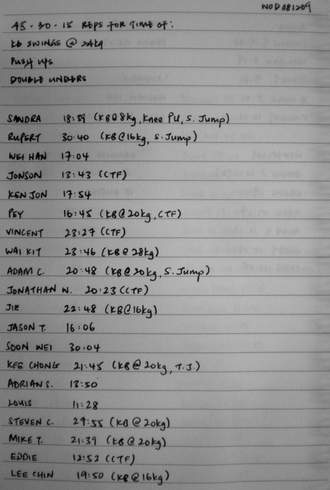 WOD 081209
45-30-15 REPS FOR TIME OF:
KB SWINGS @ 24kg
PUSH UPS
DOUBLE UNDERS
SANDRA 18:59 (KB@8kg, Knee PU, S. Jump)
RUPERT 30:40 (KB@16kg, S. Jump)
WEI HAN 17:04
JONSON 13:43 (CTF)
KEN JON 17:54
PEY 16:45 (KB@20kg, CTF)
VINCENT 23:27 (CTF)
WAI KIT 23:46 (KB@28kg)
ADAM C. 20:48 (KB@20kg, S. Jump)
JONATHAN N. 20:23 (CTF)
JIE 22:48 (KB@16kg)
JASON T. 16:06
SOON WEI 30:04
KEE CHONG 21:45 (KB@20kg, T.J.)
ADRIAN S. 13:50
LOUIS 11:28
STEVEN C. 29:55 (KB@20kg)
MIKE T. 21:39 (KB@20kg)
EDDIE 12:52 (CTF)
LEE CHIN 19:50 (KB@16kg)